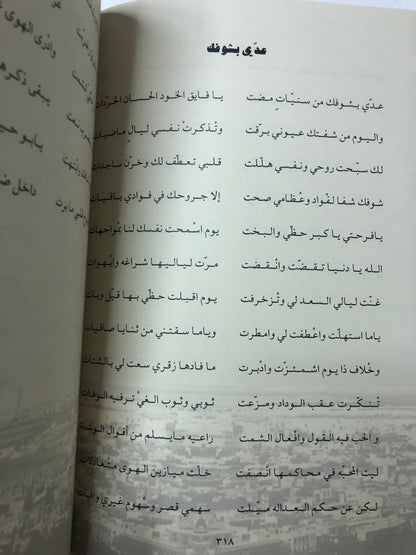 عدّي بشوفك
عدّي بشوفك من سنيّات مضت يا فايق الخود الحسان الخرّدات
واليوم من شفتك عيوني برّقت وتذكرت نفسي ليالٍ ماضيات
لك سبّحت روحي ونفسي هلّلت قلبي تعطّف لك وخرّن ساجدات
شوفك شفا لفواد وعْظامي صحت إلا جروحك في فوادي باقيات
يافرحتي يا كبر حظّي والبخت يوم اسمحت نفسك لنا بمواجهات
الله يا دنيا تقضّت وانْقضت مرّت لياليها شراغه وابْهوات
غنّت ليالي السعد لي وتزخرفت يوم اقبلت حظّي بها قيّل وبات
ياما استهلّت واعْطفت لي وامطرت وياما سقتني من ثنايا صافيات
وخْلاف ذا يوم اشمتزت وادْبرت ما فادها زقري سعت لي بالشتات
تنكّرت عقب الوداد ومزّعت ثوبي وثوب الغيْ ترفيه الرفات
والحب فيه القول وافْعال الشمت راعيه مايسلم من أقوال الوشاة
ليت المحبّه في محاكمها انْصفت خلّت ميازين الهوى متعادلات
لكن عن حكم العداله ميّلت سهمي قصر وسْهوم غيري وافيات
٣١٨